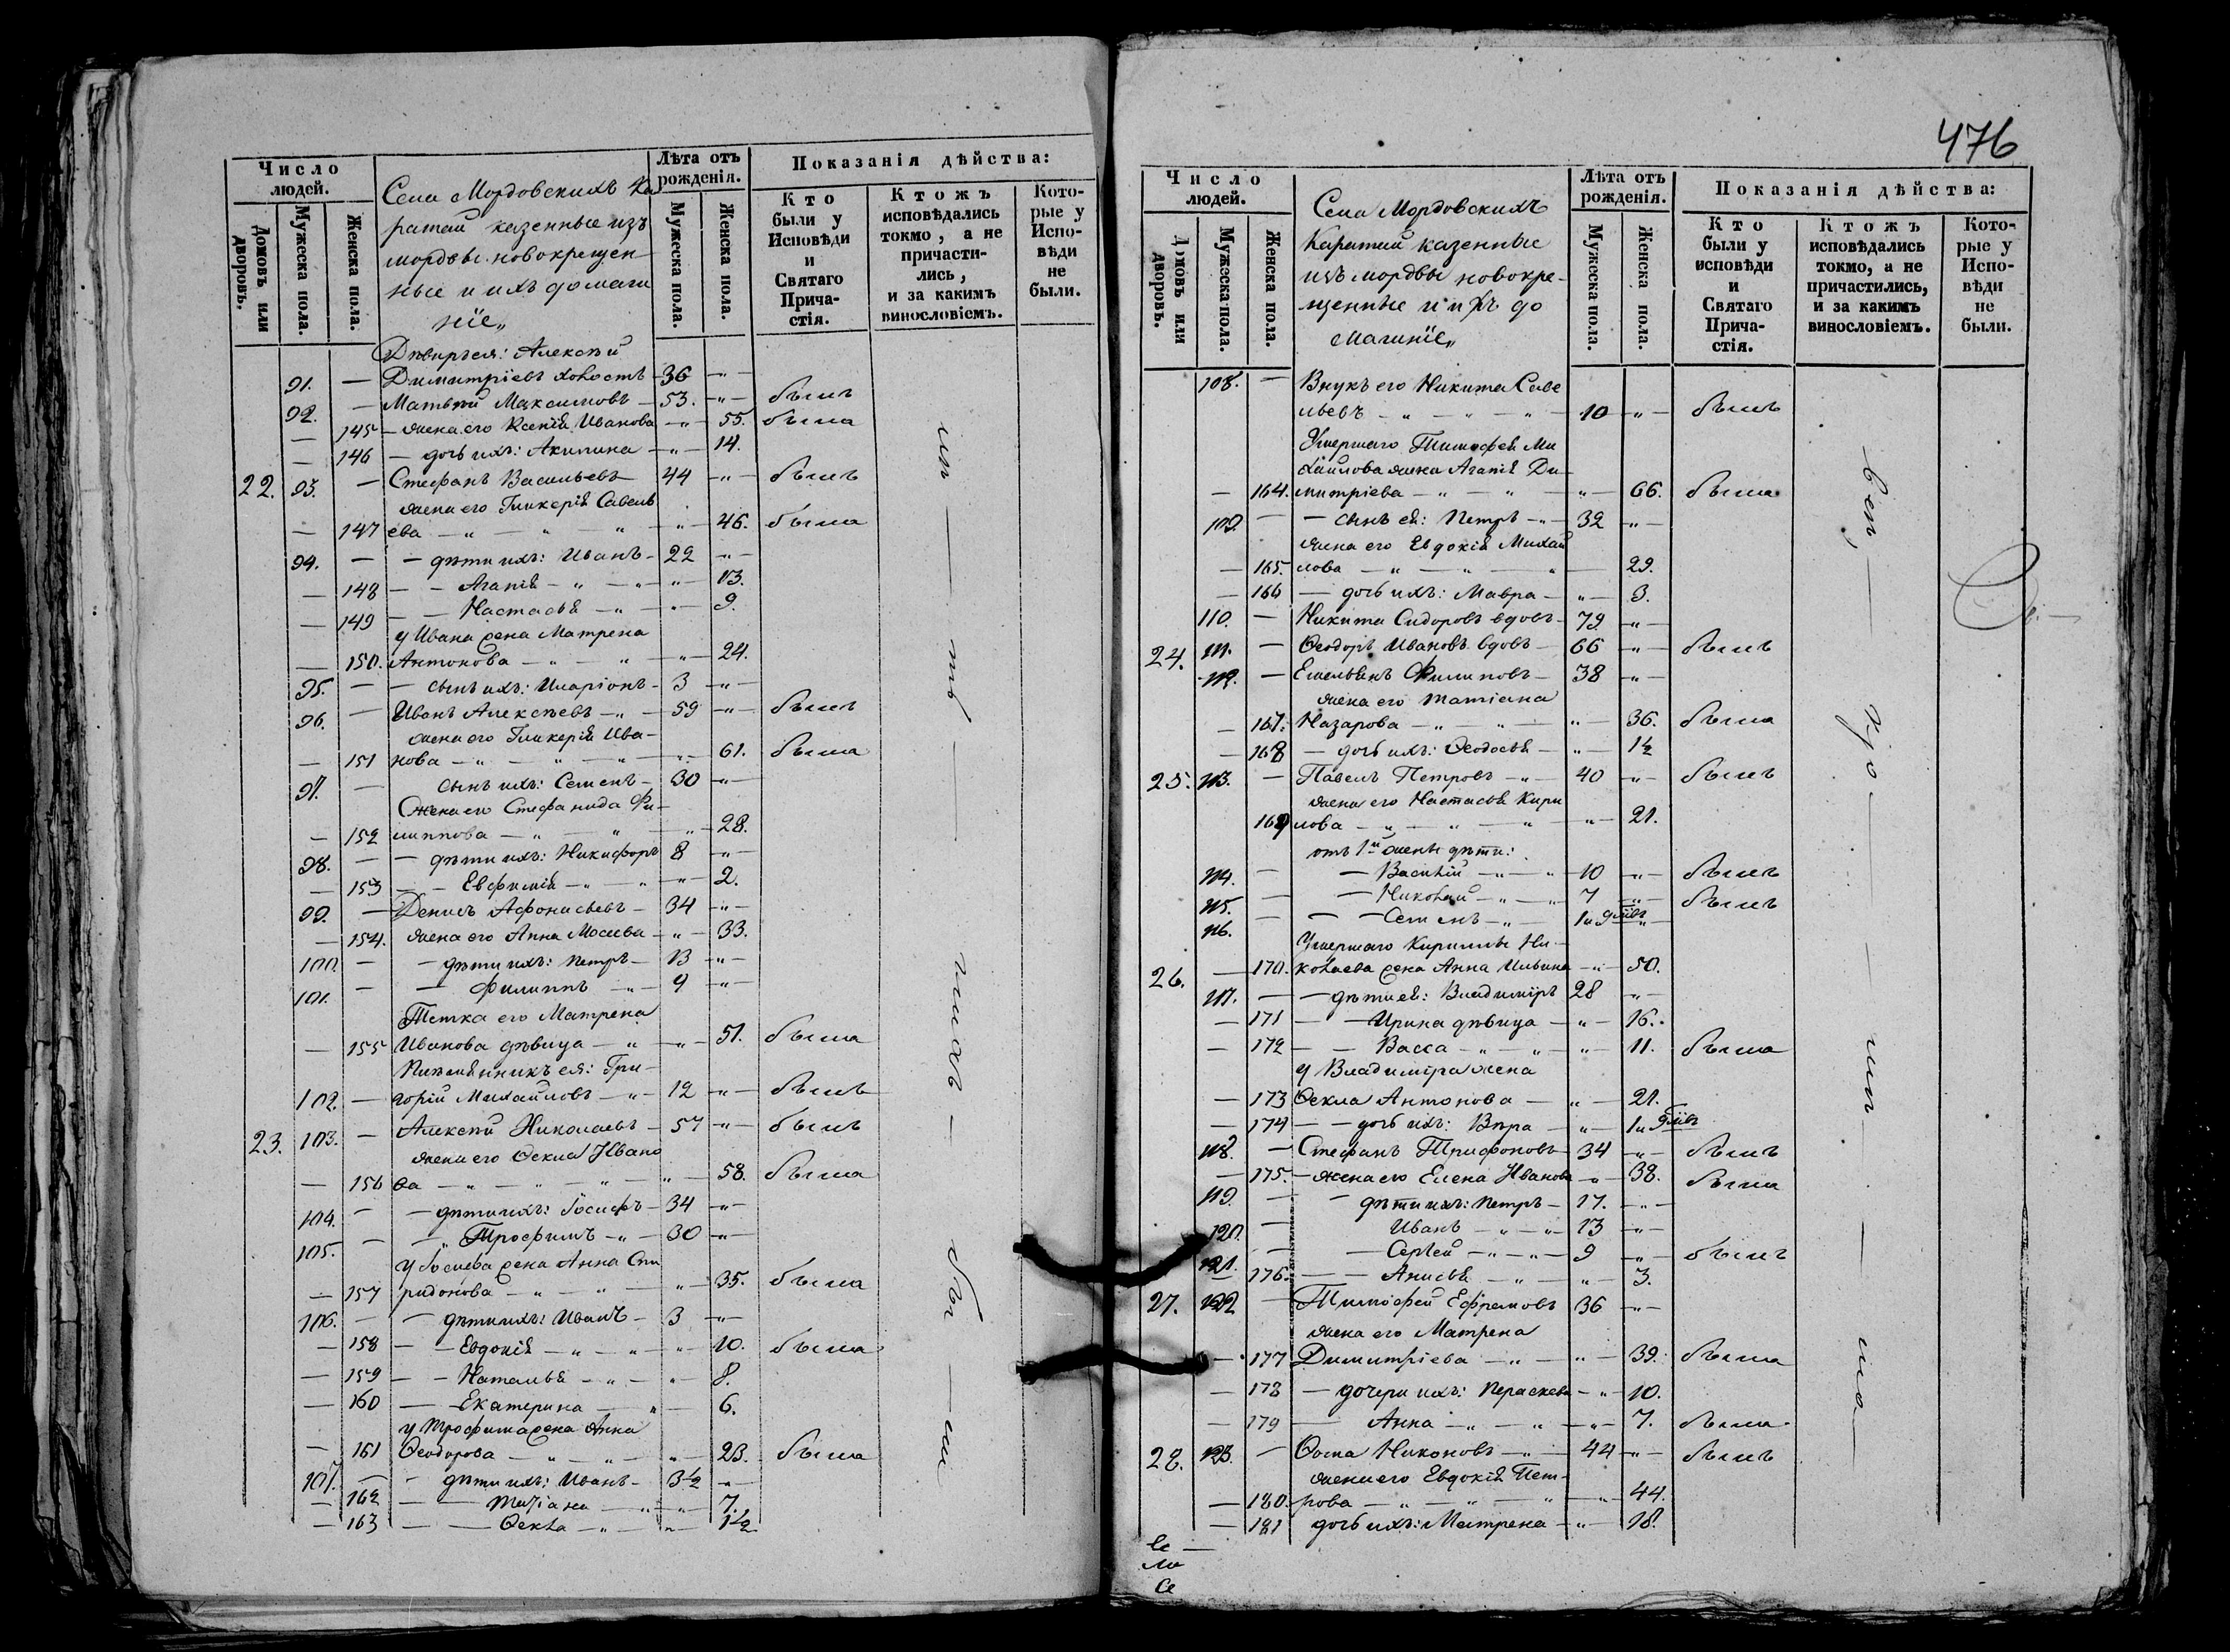 Число людей.
Домовъ или дворовъ.
Мужеска пола.
Женска пола.
Села Мордовскихъ Ка
ратай казенные изъ
мордвы новокрещен
ные и ихъ домаш
ніе„
Лѣта отъ рожденія.
Мужеска пола.
Женска пола.
Показанія дѣйства:
Кто были у Исповѣди и Святаго Прича-стія.
Ктожъ исповѣдались токмо, а не причасти-лись, и за какимъ винословіемъ.
Кото-рые у Испо-вѣди не были.
Алексѣй
91. — Димитріевъ холостъ — 36 —„—
92. — Матвѣй Максимовъ — 53. —„— былъ
— 145 — жена его Ксенія Иванова —„— 55. была
— 146 — дочь ихъ: Акилина —„— 14.
22. 93. — Стефанъ Васильевъ 44 —„— былъ
жена его Гликерія Савель
— 147 ева —„— „ „ —„— 46. была
94. — — дѣти ихъ: Иванъ — 22 —„—
— 148 — — Агапія —„— —„— 13.
— 149 — — Настасья —„— —„— 9.
у Ивана жена Матрена
— 150. Антонова —„— „ —„— 24.
95. — — сынъ ихъ: Иларіонъ — 3 —„—
96. — Иванъ Алексѣевъ —„— 59 —„— былъ
жена его Гликерія Ива-
— 151 нова —„— „ —„— 61. была
97. — сынъ ихъ: Семенъ — 30 —„—
Жена его Стефанида Фи-
— 152 липпова —„— „ —„— 28.
98. — — дѣти ихъ: Никифоръ 8 —„—
— 153 — — Евфимія —„— —„— 2.
99. — Денисъ Афонасьевъ — 34 —„—
— 154. жена его Анна Мосеева —„— 33.
100. — — дѣти ихъ: Петръ — 13 —„—
101. — — Филиппъ —„— 9 —„—
Тетка его Матрена
— 155 Иванова дѣвица —„— —„— 51. была
Племянникъ ея: Гри-
102. — горій Михайловъ —„— 12 —„— былъ
23. 103. — Алексѣй Николаевъ — 57 —„— былъ
жена его Ѳекла Ивано
— 156 ва —„— „ „ —„— 58. была
104. — — дѣти ихъ: Іосифъ — 34 —„—
105. — „ Трофимъ —„— 30 —„—
у Іосифа жена Анна Спи
— 157 ридонова —„— „ — „— 35. была
106. — — дѣти ихъ: Иванъ — 3 —„—
— 158 — — Евдокія —„— —„— 10. была
— 159 — — Наталья —„— „— 8.
— 160 — Екатерина — „ — 6.
у Трофима жена Анна
— 161 Ѳеодорова — „ „ —„— 23. была
107. — — дѣти ихъ: Иванъ — 3½ —„—
— 162 — — Татіана — „— 7.
— 163 — — Ѳекла —„— —„— 1½
476
Число людей.
Домовъ или дворовъ.
Мужеска пола.
Женска пола.
Села Мордовскихъ
Каратай казенные
изъ мордвы новокре-
щенные и ихъ до
машніе„
Лѣта отъ рожденія.
Мужеска пола.
Женска пола.
Показанія дѣйства:
Кто были у исповѣди и Святаго Прича-стія.
Ктожъ исповѣдались токмо, а не причастились, и за какимъ винословіемъ.
Кото-рые у Испо-вѣди не были.
108. — Внукъ его Никита Саве
льевъ —„— „ „ — 10 —„— былъ
Умершаго Тимофея Ми
хайлова жена Агапія Ди-
— 164. митріева —„— „ — „— 66. была
109. — — сынъ ея: Петръ —„— 32 —„—
жена его Евдокія Михай
— 165. лова —„— „ „ — 29.
— 166 — дочь ихъ: Мавра — „— 3.
110. — Никита Сидоровъ вдовъ — 79 —„—
24. 111. — Ѳеодоръ Ивановъ вдовъ — 66 —„— былъ
112. — Емельянъ Филиповъ — 38 —„—
жена его Татіана
— 167. Назарова —„— „ — „— 36. была
— 168 — дочь ихъ: Ѳеодосья — „— 1½
25. 113. — Павелъ Петровъ —„— 40 —„— былъ
жена его Настасья Кири
169 лова —„— „ „ „— 21.
отъ 1й жены дѣти:
114. — — Василій —„— „ 10 —„— былъ
115. — — Николай —„— „ 7 —„— былъ
116. — — Семенъ —„— 1 и 9 мѣс „
Умершаго Кириллы Ни-
26. — 170. колаева жена Анна Ильина —„— 50.
117. — — дѣти ея: Владиміръ 28 —„—
— 171 — — Ирина дѣвица — „— 16.
— 172 — — Васса —„— „ „— 11. была
у Владиміра жена
— 173 Ѳекла Антонова — „— 21.
— 174 — — дочь ихъ: Вѣра — „— 1 и 9 мѣс
118. — Стефанъ Трифоновъ — 34 —„— былъ
— 175. — жена его Елена Иванова —„— 38. была
119. — — дѣти ихъ: Петръ — 17. —„—
120. — Иванъ —„— „ 13 —„—
121. — — Сергей —„— „ 9 —„— былъ
— 176. — — Анисья —„— „— 3.
27. 122 — Тимофей Ефремовъ 36 —„—
жена его Матрена
— 177 Димитріева —„— „— 39. была
— 178 — дочери ихъ: Параскева —„— 10.
— 179 — Анна —„— „ —„— 7. была
28. 123. — Ѳома Никоновъ —„— 44 —„— былъ
жена его Евдокія Пет-
— 180. рова —„— „ „ —„— 44.
— 181 дочь ихъ: Матрена —„— 18.